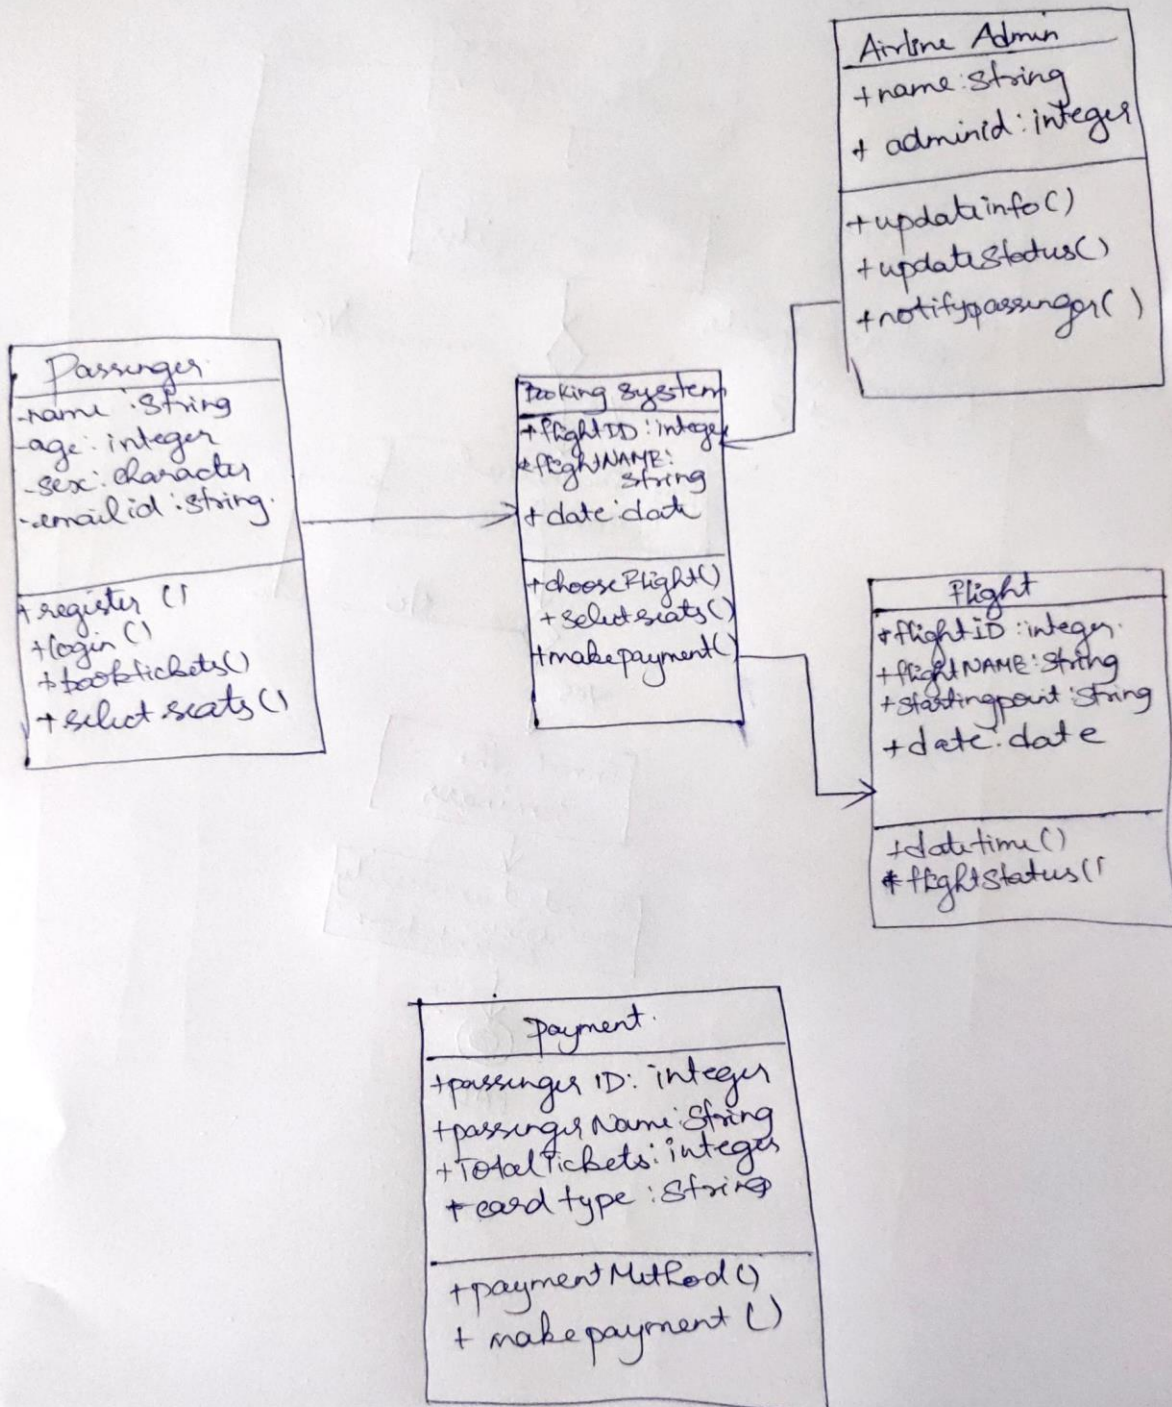 Airline Admin
+name:String
+ adminid:integer
+updateinfo()
+updateStatus()
+notifypassenger( )
Passenger
-name:String
-age:integer
-sex:character
-emailid:string.
+register ()
+login()
+booktickets()
+select seats()
Booking System
+flightID:integer
+flightNAME:
String
+date:date
+chooseFlight()
+selectseats()
+makepayment()
Flight
+flightID:integer.
+flightNAME:String
+startingpoint:String
+date:date
+datetime()
+flightStatus()
Payment.
+passenger ID: integer
+passengerName:String
+TotalTickets:integer
+card type:String
+paymentMethod()
+ makepayment ()